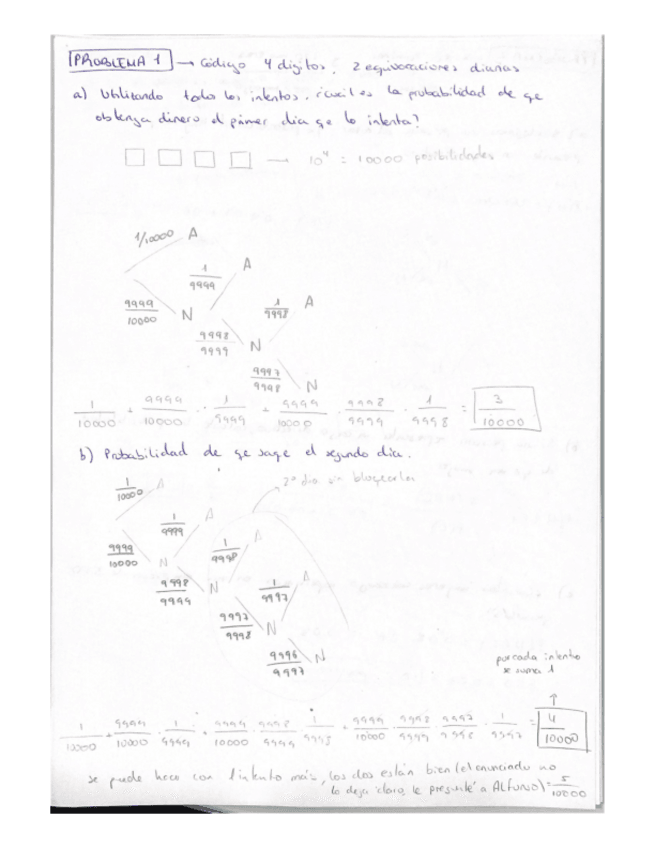 PROBLEMA 1 → Código 4 dígitos. 2 equivocaciones diarias
a) Utilizando todo los intentos. ¿cuál es la probabilidad de qe
obtenga dinero el primer día qe lo intenta?
— 10⁴ = 10000 posibilidades
1/10000 A
1/9999 A
9999/10000 N 1/9998 A
9998/9999 N
9997/9998 N
1/10000 + 9999/10000 · 1/9999 + 9999/10000 · 9998/9999 · 1/9998 = 3/10000
b) Probabilidad de qe saqe el segundo día.
1/10000 A 2º día sin bloquearla
1/9999 A
9999/10000 N 1/9998 A
9998/9999 N 1/9997 A
9997/9998 N
9996/9997 N
por cada intento
se suma 1
1/10000 + 9999/10000 · 1/9999 + 9999/10000 · 9998/9999 · 1/9998 + 9999/10000 · 9998/9999 · 9997/9998 · 1/9997 = 4/10000
se puede hacer con 1 intento más, los dos están bien (el enunciado no
lo deja claro, le pregunté a ALFONSO) = 5/10000